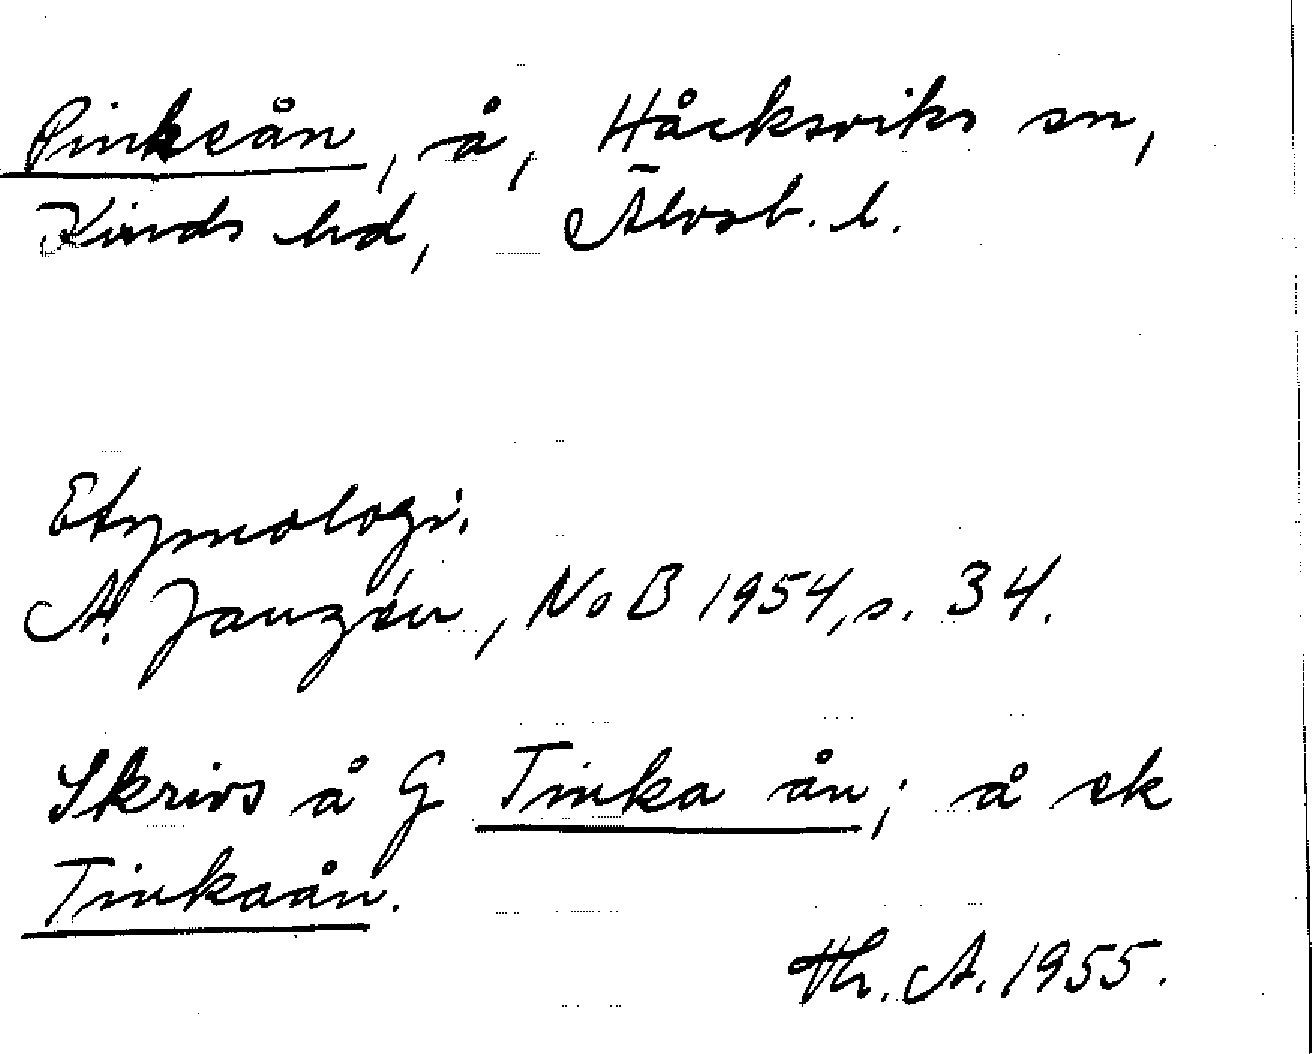 Pinkeån, å, Håcksviks sn,
Kinds hd, Älvsb. l.
Etymologi.
A. Janzén, NoB 1954, s. 34.
Skrivs å G Tinka ån; å ek
Tinkaån.
Th. A. 1955.